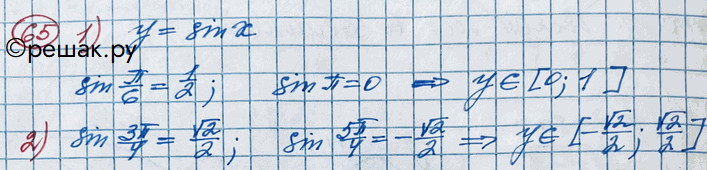 65 1) y = sin x
©решак.ру
sin π/6 = 1/2; sin π = 0 ⇒ y ∈ [0; 1]
2) sin 3π/4 = √2/2; sin 5π/4 = -√2/2 ⇒ y ∈ [-√2/2; √2/2]